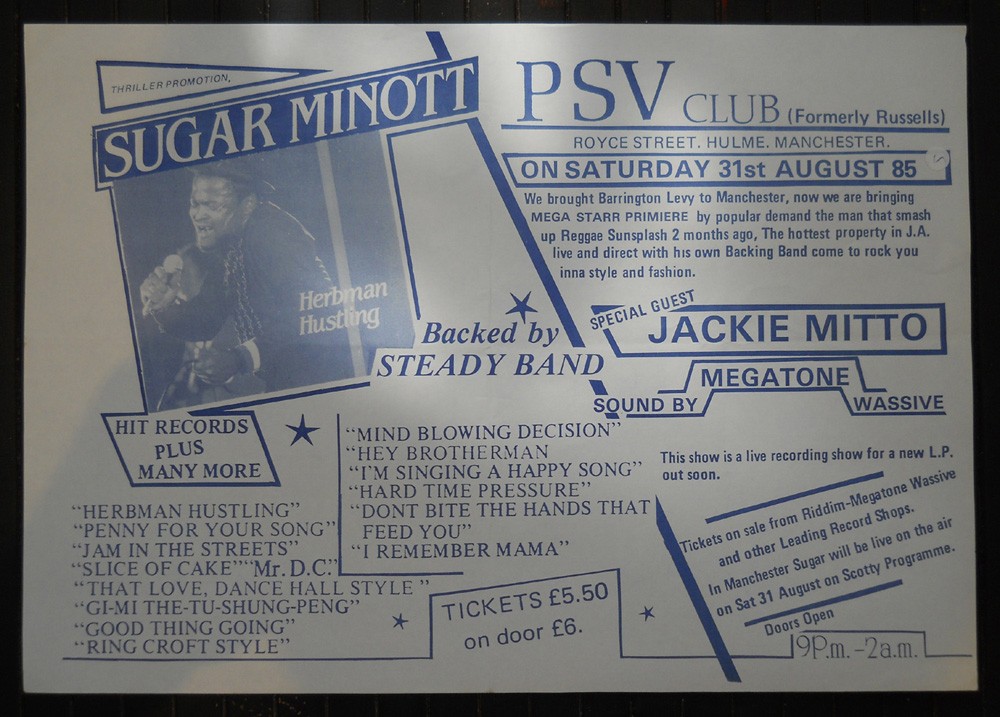 THRILLER PROMOTION,
SUGAR MINOTT
Herbman
Hustling
Backed by
STEADY BAND
PSV CLUB (Formerly Russells)
ROYCE STREET. HULME. MANCHESTER.
ON SATURDAY 31st AUGUST 85
We brought Barrington Levy to Manchester, now we are bringing
MEGA STARR PRIMIERE by popular demand the man that smash
up Reggae Sunsplash 2 months ago, The hottest property in J.A.
live and direct with his own Backing Band come to rock you
inna style and fashion.
SPECIAL GUEST
JACKIE MITTO
MEGATONE
SOUND BY WASSIVE
HIT RECORDS
PLUS
MANY MORE
"HERBMAN HUSTLING"
"PENNY FOR YOUR SONG"
"JAM IN THE STREETS"
"SLICE OF CAKE" "Mr. D.C."
"THAT LOVE, DANCE HALL STYLE"
"GI-MI THE-TU-SHUNG-PENG"
"GOOD THING GOING"
"RING CROFT STYLE"
"MIND BLOWING DECISION"
"HEY BROTHERMAN
"I'M SINGING A HAPPY SONG"
"HARD TIME PRESSURE"
"DONT BITE THE HANDS THAT
FEED YOU"
"I REMEMBER MAMA"
TICKETS £5.50
on door £6.
This show is a live recording show for a new L.P.
out soon.
Tickets on sale from Riddim-Megatone Wassive
and other Leading Record Shops.
In Manchester Sugar will be live on the air
on Sat 31 August on Scotty Programme.
Doors Open
9P.m.-2a.m.